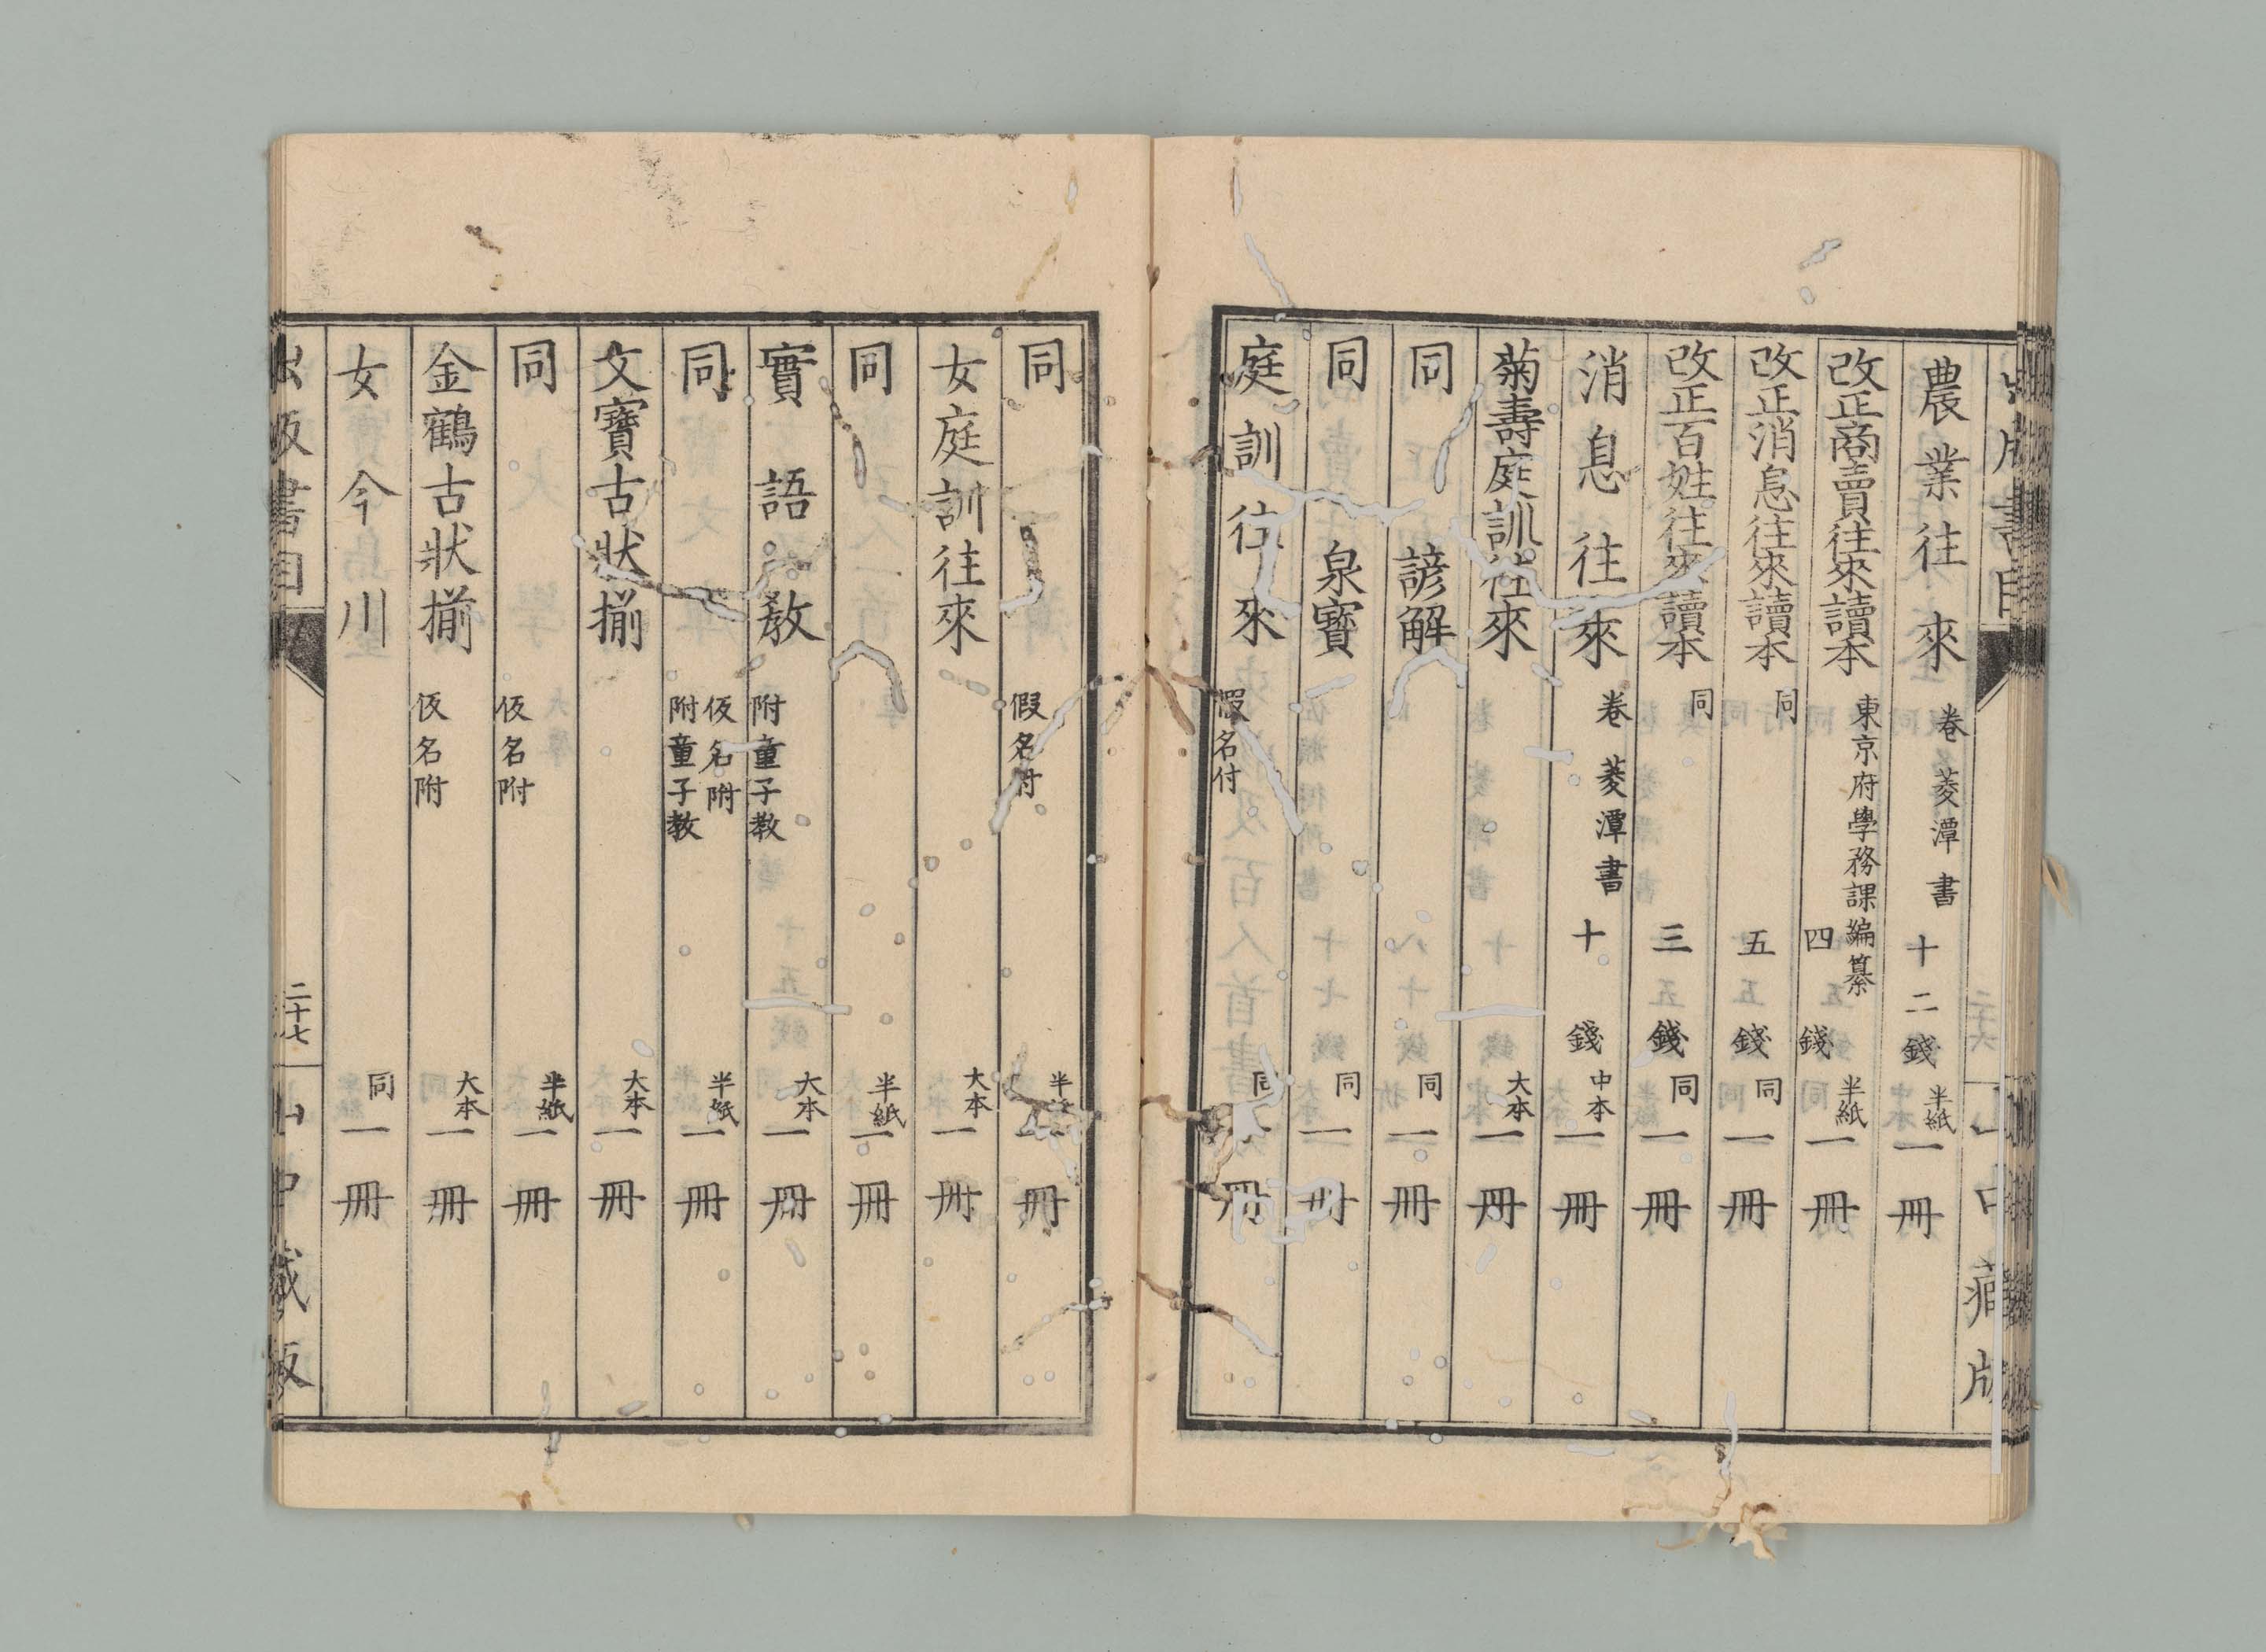 農業往來 卷菱潭書 十二錢 半紙一冊
改正商賣往來讀本 東京府學務課編纂 四錢 半紙一冊
改正消息往來讀本 同 五錢 同一冊
改正百姓往來讀本 同 三錢 同一冊
消息往來 卷菱潭書 十錢 中本一冊
菊壽庭訓往來 大本一冊
同 諺解 同一冊
同 泉寶 同一冊
庭訓往來 假名付 同 冊
同 假名附 半 冊
女庭訓往來 大本一冊
同 半紙一冊
實語教 附童子教 大本一冊
同 仮名附附童子教 半紙一冊
文寶古狀揃 大本一冊
同 仮名附 半紙一冊
金鶴古狀揃 仮名附 大本一冊
女今川 同一冊
出版書目 二十七 山中藏版